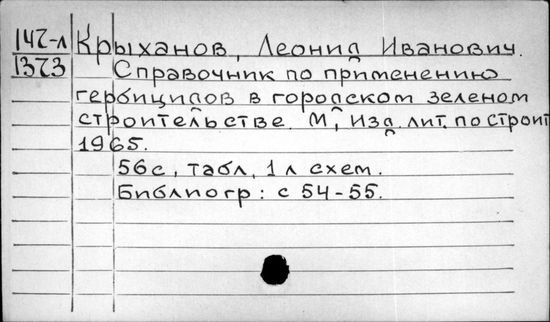 147-л Крыханов, Леонид Иванович.
1373 Справочник по применению
гербицидов в городском зеленом
строительстве. М, Изд. лит. по строит
1965.
56с, табл, 1 л схем.
Библиогр: с 54-55.